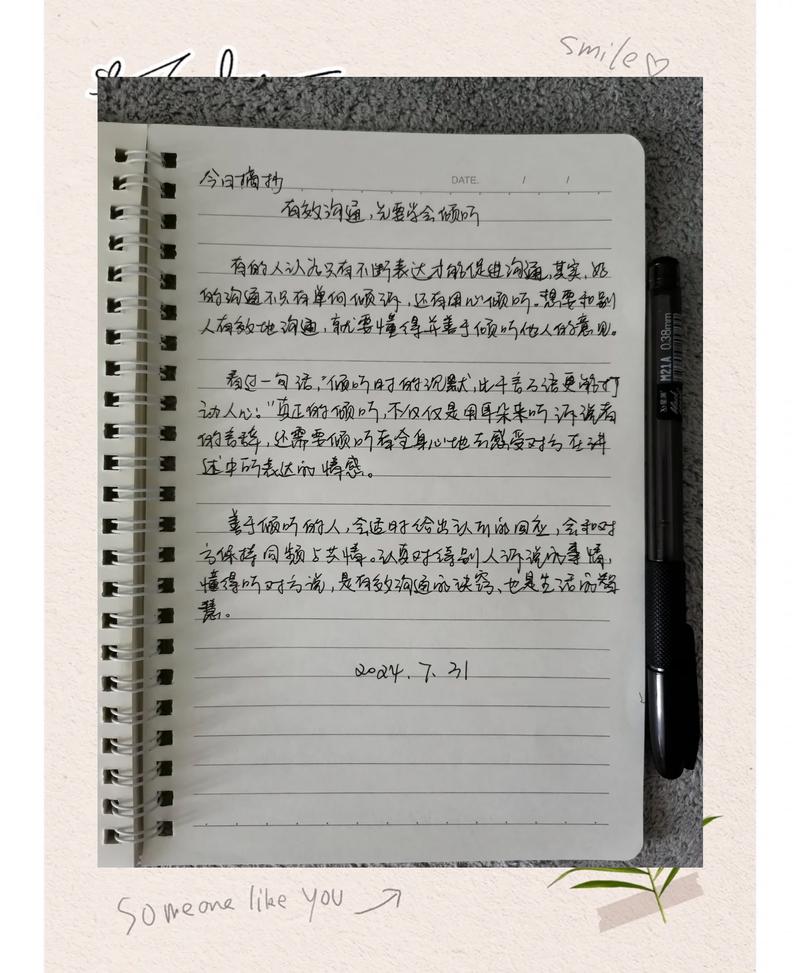 smile♡
今日摘抄
DATE. / /
有效沟通,先要学会倾听
有的人认为只有不断表达才能促进沟通,其实,好
的沟通不只有单向倾诉,还有用心倾听。想要和别
人有效地沟通,就要懂得并善于倾听他人的意见。
看过一句话,“倾听时的沉默,比千言万语更能打
动人心。”真正的倾听,不仅仅是用耳朵来听诉说者
的言辞,还需要倾听者全身心地去感受对方在讲
述中所表达的情感。
善于倾听的人,会适时给出认同的回应,会和对
方保持同频与共情。认真对待别人诉说的事情,
懂得听对方说,是有效沟通的诀窍,也是生活的智
慧。
2024.7.31
M21A 0.38mm
Someone like you →